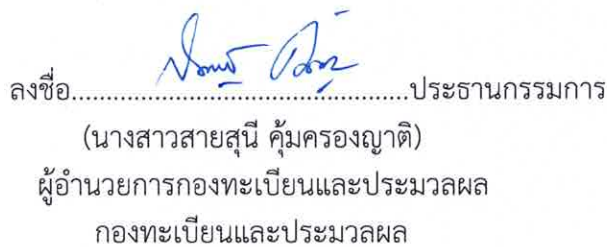 ลงชื่อ........................................................ประธานกรรมการ
(นางสาวสายสุนี คุ้มครองญาติ)
ผู้อำนวยการกองทะเบียนและประมวลผล
กองทะเบียนและประมวลผล